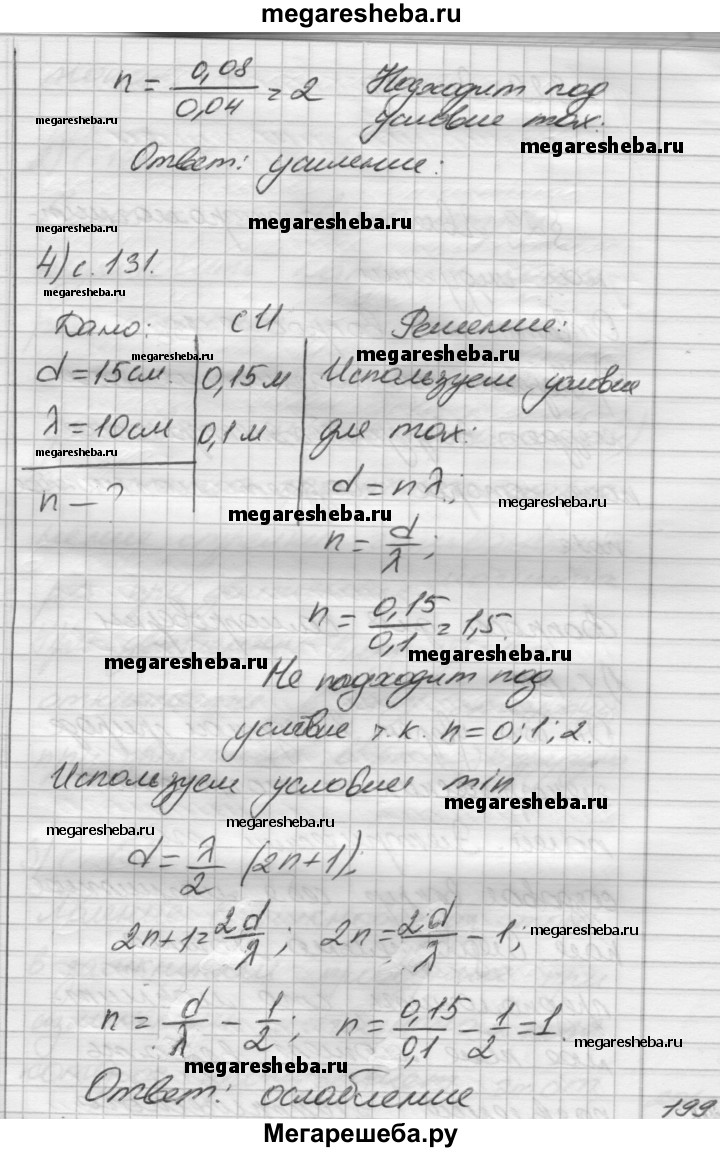 megaresheba.ru
n = 0,08/0,04 = 2 Подходит под
megaresheba.ru
условие max.
megaresheba.ru
Ответ: усиление.
megaresheba.ru
megaresheba.ru
4) с. 131.
megaresheba.ru
Дано: СИ Решение:
megaresheba.ru megaresheba.ru
d = 15см. 0,15м Используем условие
λ = 10см 0,1м для max:
megaresheba.ru
n — ? d = nλ;
megaresheba.ru
megaresheba.ru
n = d/λ;
n = 0,15/0,1 = 1,5.
megaresheba.ru megaresheba.ru
Не подходит под
условие т.к. n = 0; 1; 2.
Используем условие min
megaresheba.ru
megaresheba.ru megaresheba.ru
d = λ/2 (2n+1);
2n+1 = 2d/λ; 2n = 2d/λ - 1;
megaresheba.ru
n = d/λ - 1/2; n = 0,15/0,1 - 1/2 = 1.
megaresheba.ru
megaresheba.ru
Ответ: ослабление
199
Мегарешеба.ру